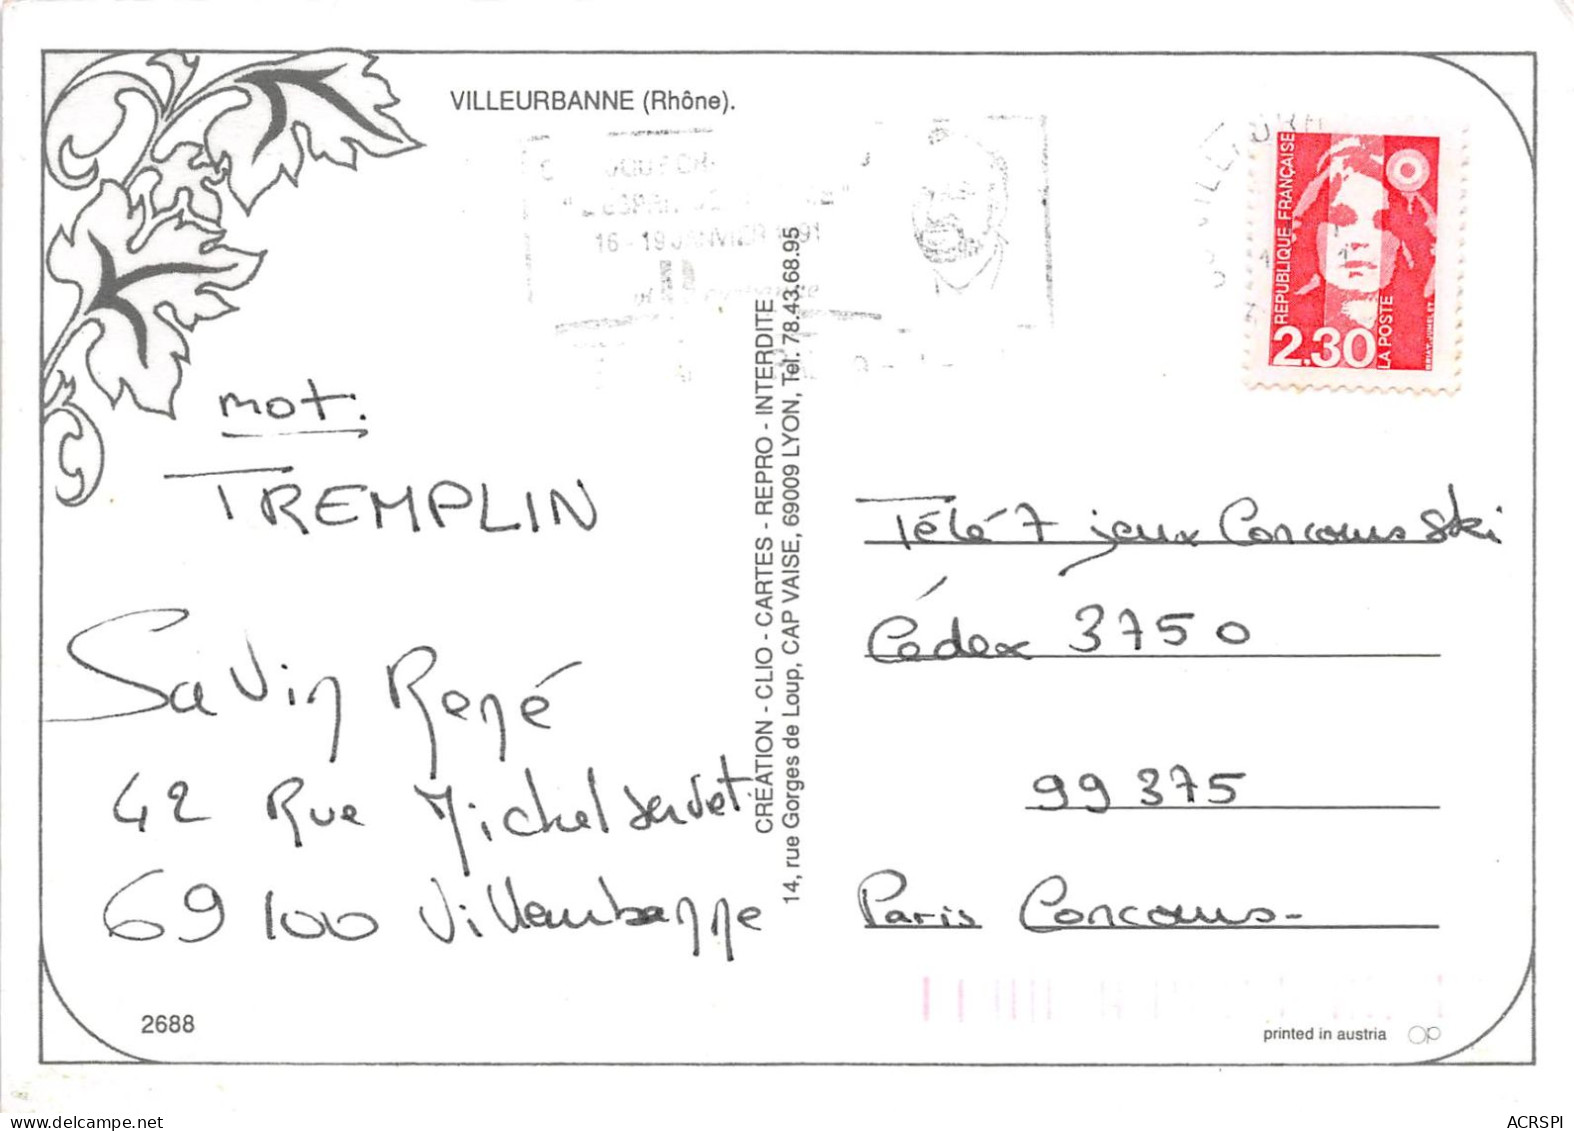 VILLEURBANNE (Rhône).
16 - 19 JANVIER 1991
RÉPUBLIQUE FRANÇAISE
2.30
LA POSTE
mot:
TREMPLIN
Savin René
42 Rue Michel Servet.
69100 Villeurbanne
CRÉATION - CLIO - CARTES - REPRO - INTERDITE
14, rue Gorges de Loup, CAP VAISE, 69009 LYON, Tel. 78.43.68.95
Télé 7 jeux Concours Ski
Cédex 3750
99 375
Paris Concours-
2688
printed in austria
ACRSPI